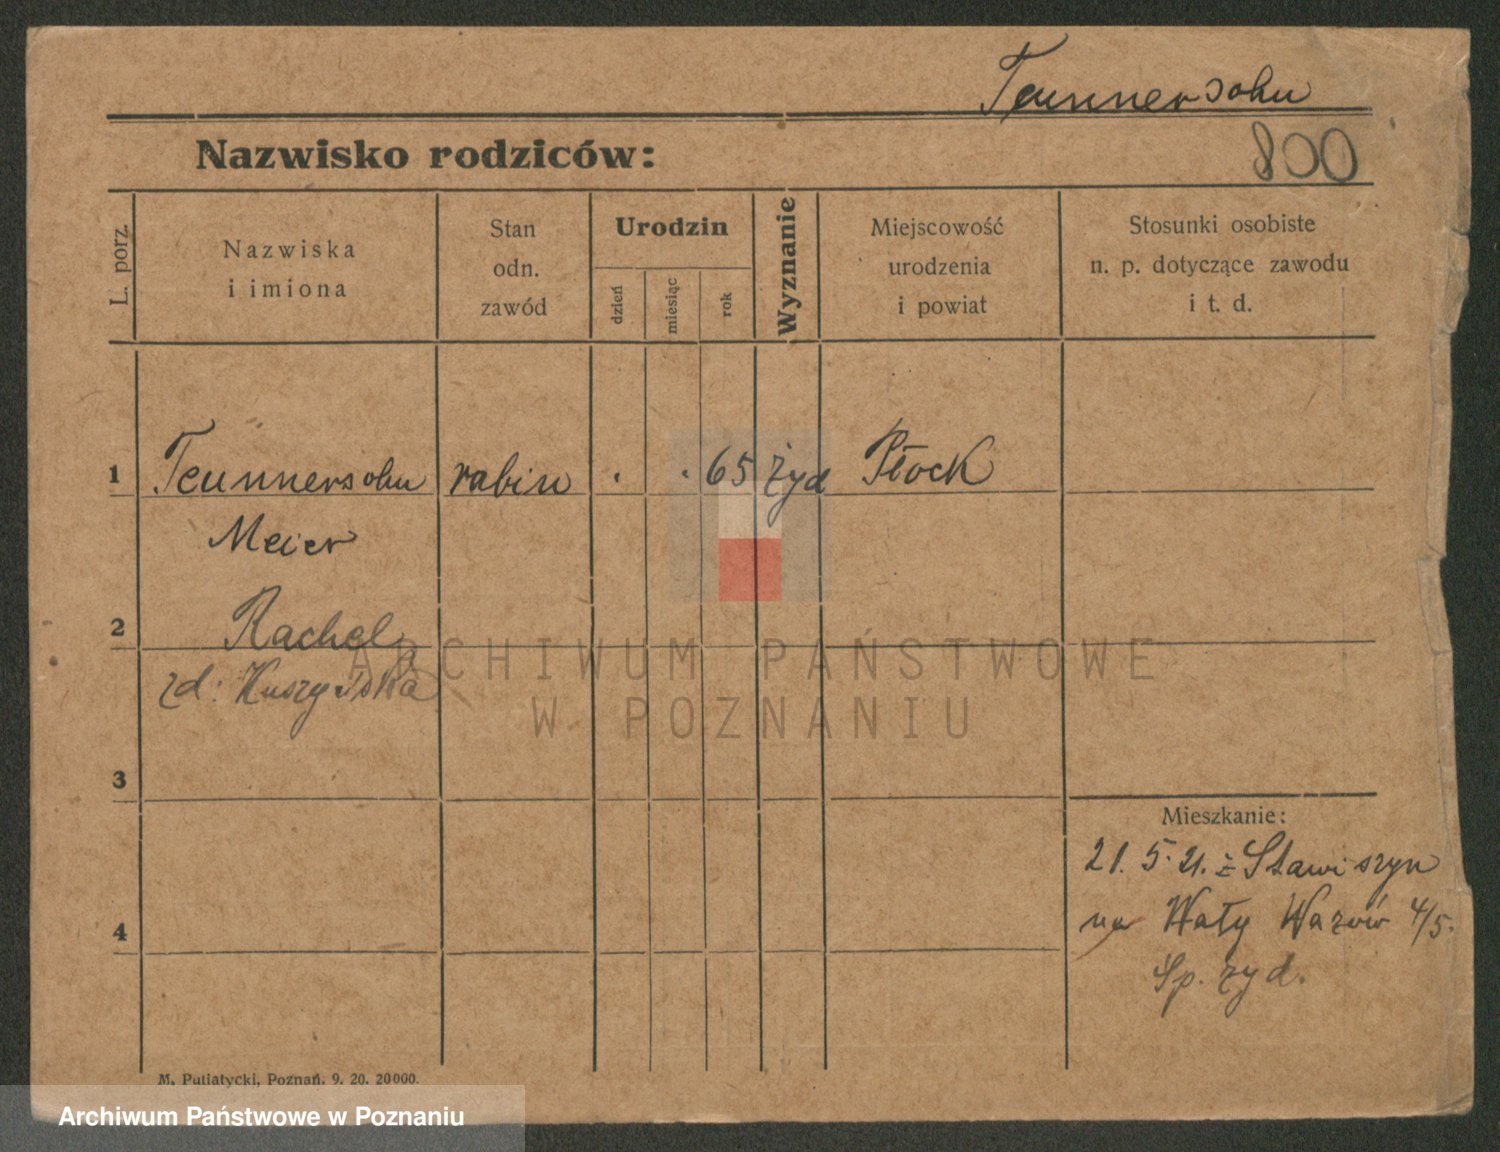 Teunnersohn
Nazwisko rodziców:
800
L. porz.
Nazwiska
i imiona
Stan
odn.
zawód
Urodzin
dzień
miesiąc
rok
Wyznanie
Miejscowość
urodzenia
i powiat
Stosunki osobiste
n. p. dotyczące zawodu
i t. d.
1 Teunnersohn rabin . . 65 żyd Płock
Meier
2 Rachel
zd:
3
Mieszkanie:
21. 5. 21. z Stawiszyn
na Wały Wazów 4/5.
4
Sp. żyd.
M. Putiatycki, Poznań. 9. 20. 20000.
ARCHIWUM PAŃSTWOWE
W POZNANIU
Archiwum Państwowe w Poznaniu